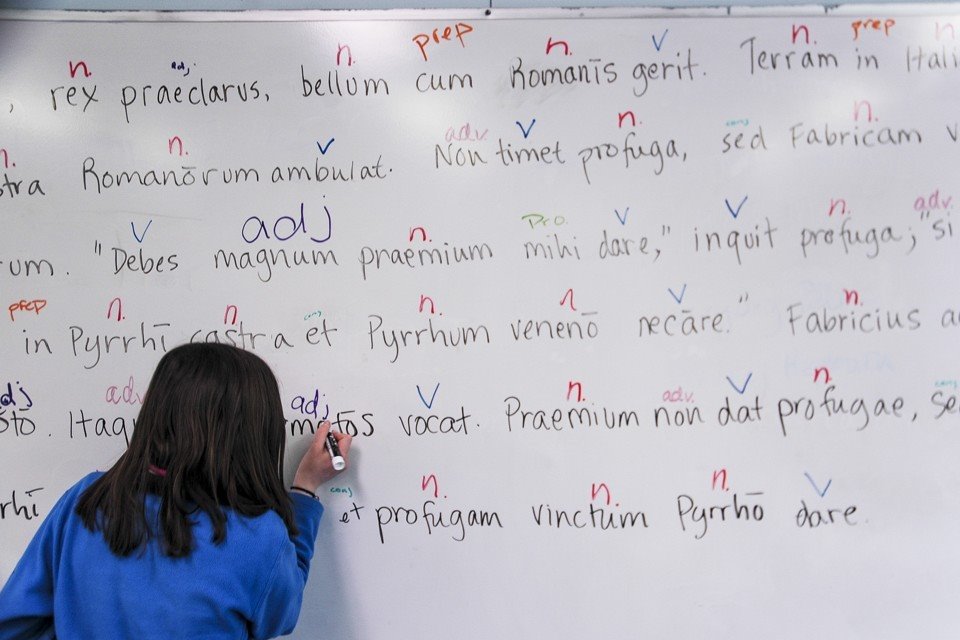 n. adj n. prep n. v n. prep n
, rex praeclarus, bellum cum Romanīs gerit. Terram in Itali
n. n. v adv. v n. conj n.
stra Romanōrum ambulat. Non timet profuga, sed Fabricam v
v adj n. pro. v v n. adv.
rum. "Debes magnum praemium mihi dare," inquit profuga; "si
prep n. n. conj n. n v n.
in Pyrrhī castra et Pyrrhum venenō necāre." Fabricius a
adj adv adj v n. adv. v n. conj
ōstō. Itaq mātōs vocat. Praemium non dat profugae, se
conj n. n. n. v
rrhī et profugam vinctum Pyrrhō dare.